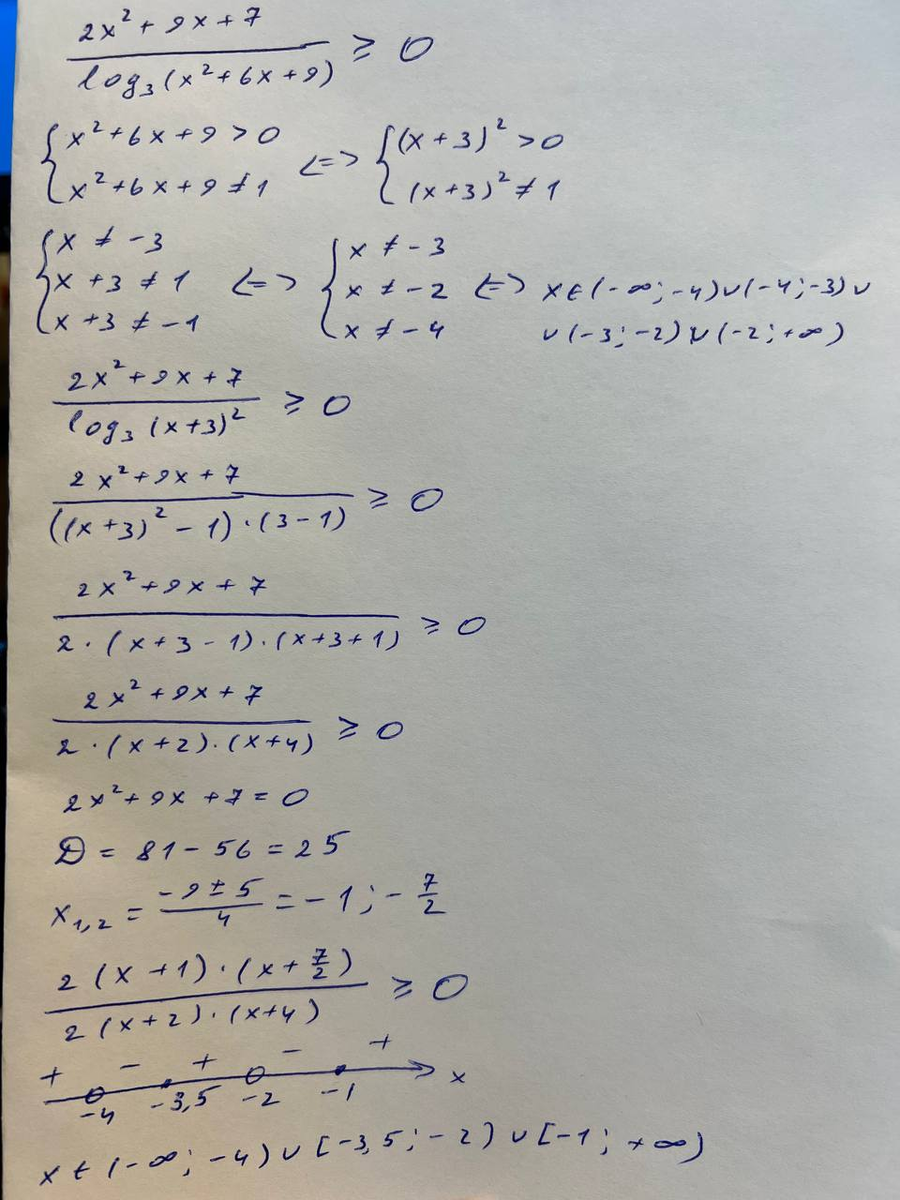 (2x² + 9x + 7) / (log₃(x² + 6x + 9)) ≥ 0
{ x² + 6x + 9 > 0 ; x² + 6x + 9 ≠ 1 <=> { (x + 3)² > 0 ; (x + 3)² ≠ 1
{ x ≠ -3 ; x + 3 ≠ 1 ; x + 3 ≠ -1 <=> { x ≠ -3 ; x ≠ -2 ; x ≠ -4 <=> x ∈ (-∞; -4) ∪ (-4; -3) ∪
∪ (-3; -2) ∪ (-2; +∞)
(2x² + 9x + 7) / (log₃ (x+3)²) ≥ 0
(2x² + 9x + 7) / (((x+3)² - 1) · (3 - 1)) ≥ 0
(2x² + 9x + 7) / (2 · (x + 3 - 1) · (x + 3 + 1)) ≥ 0
(2x² + 9x + 7) / (2 · (x + 2) · (x + 4)) ≥ 0
2x² + 9x + 7 = 0
D = 81 - 56 = 25
x₁,₂ = (-9 ± 5) / 4 = -1; -7/2
(2(x + 1) · (x + 7/2)) / (2(x + 2) · (x + 4)) ≥ 0
+ - + - +
-4 -3,5 -2 -1 x
x ∈ (-∞; -4) ∪ [-3,5; -2) ∪ [-1; +∞)